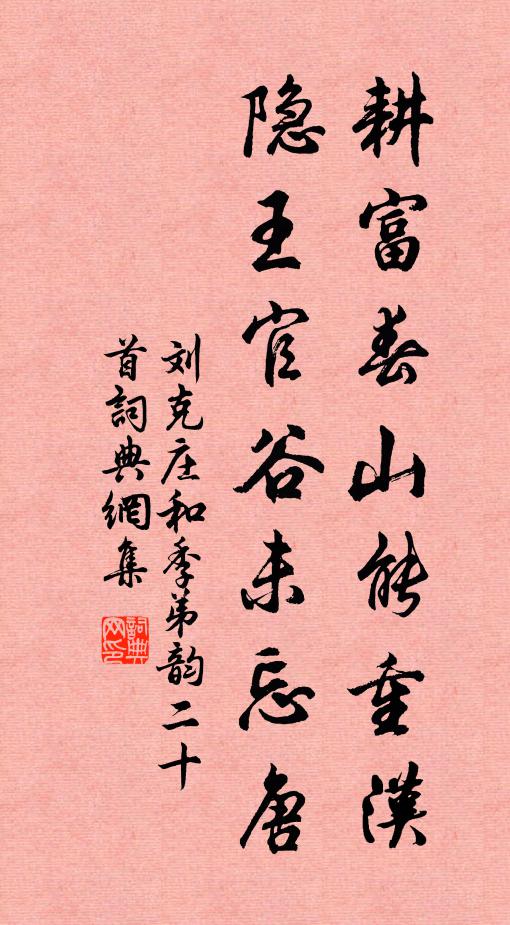 耕富春山能重漢
隐王官谷未忘唐
刘克庄和季弟韵二十
首詞典網集
詞典
网印